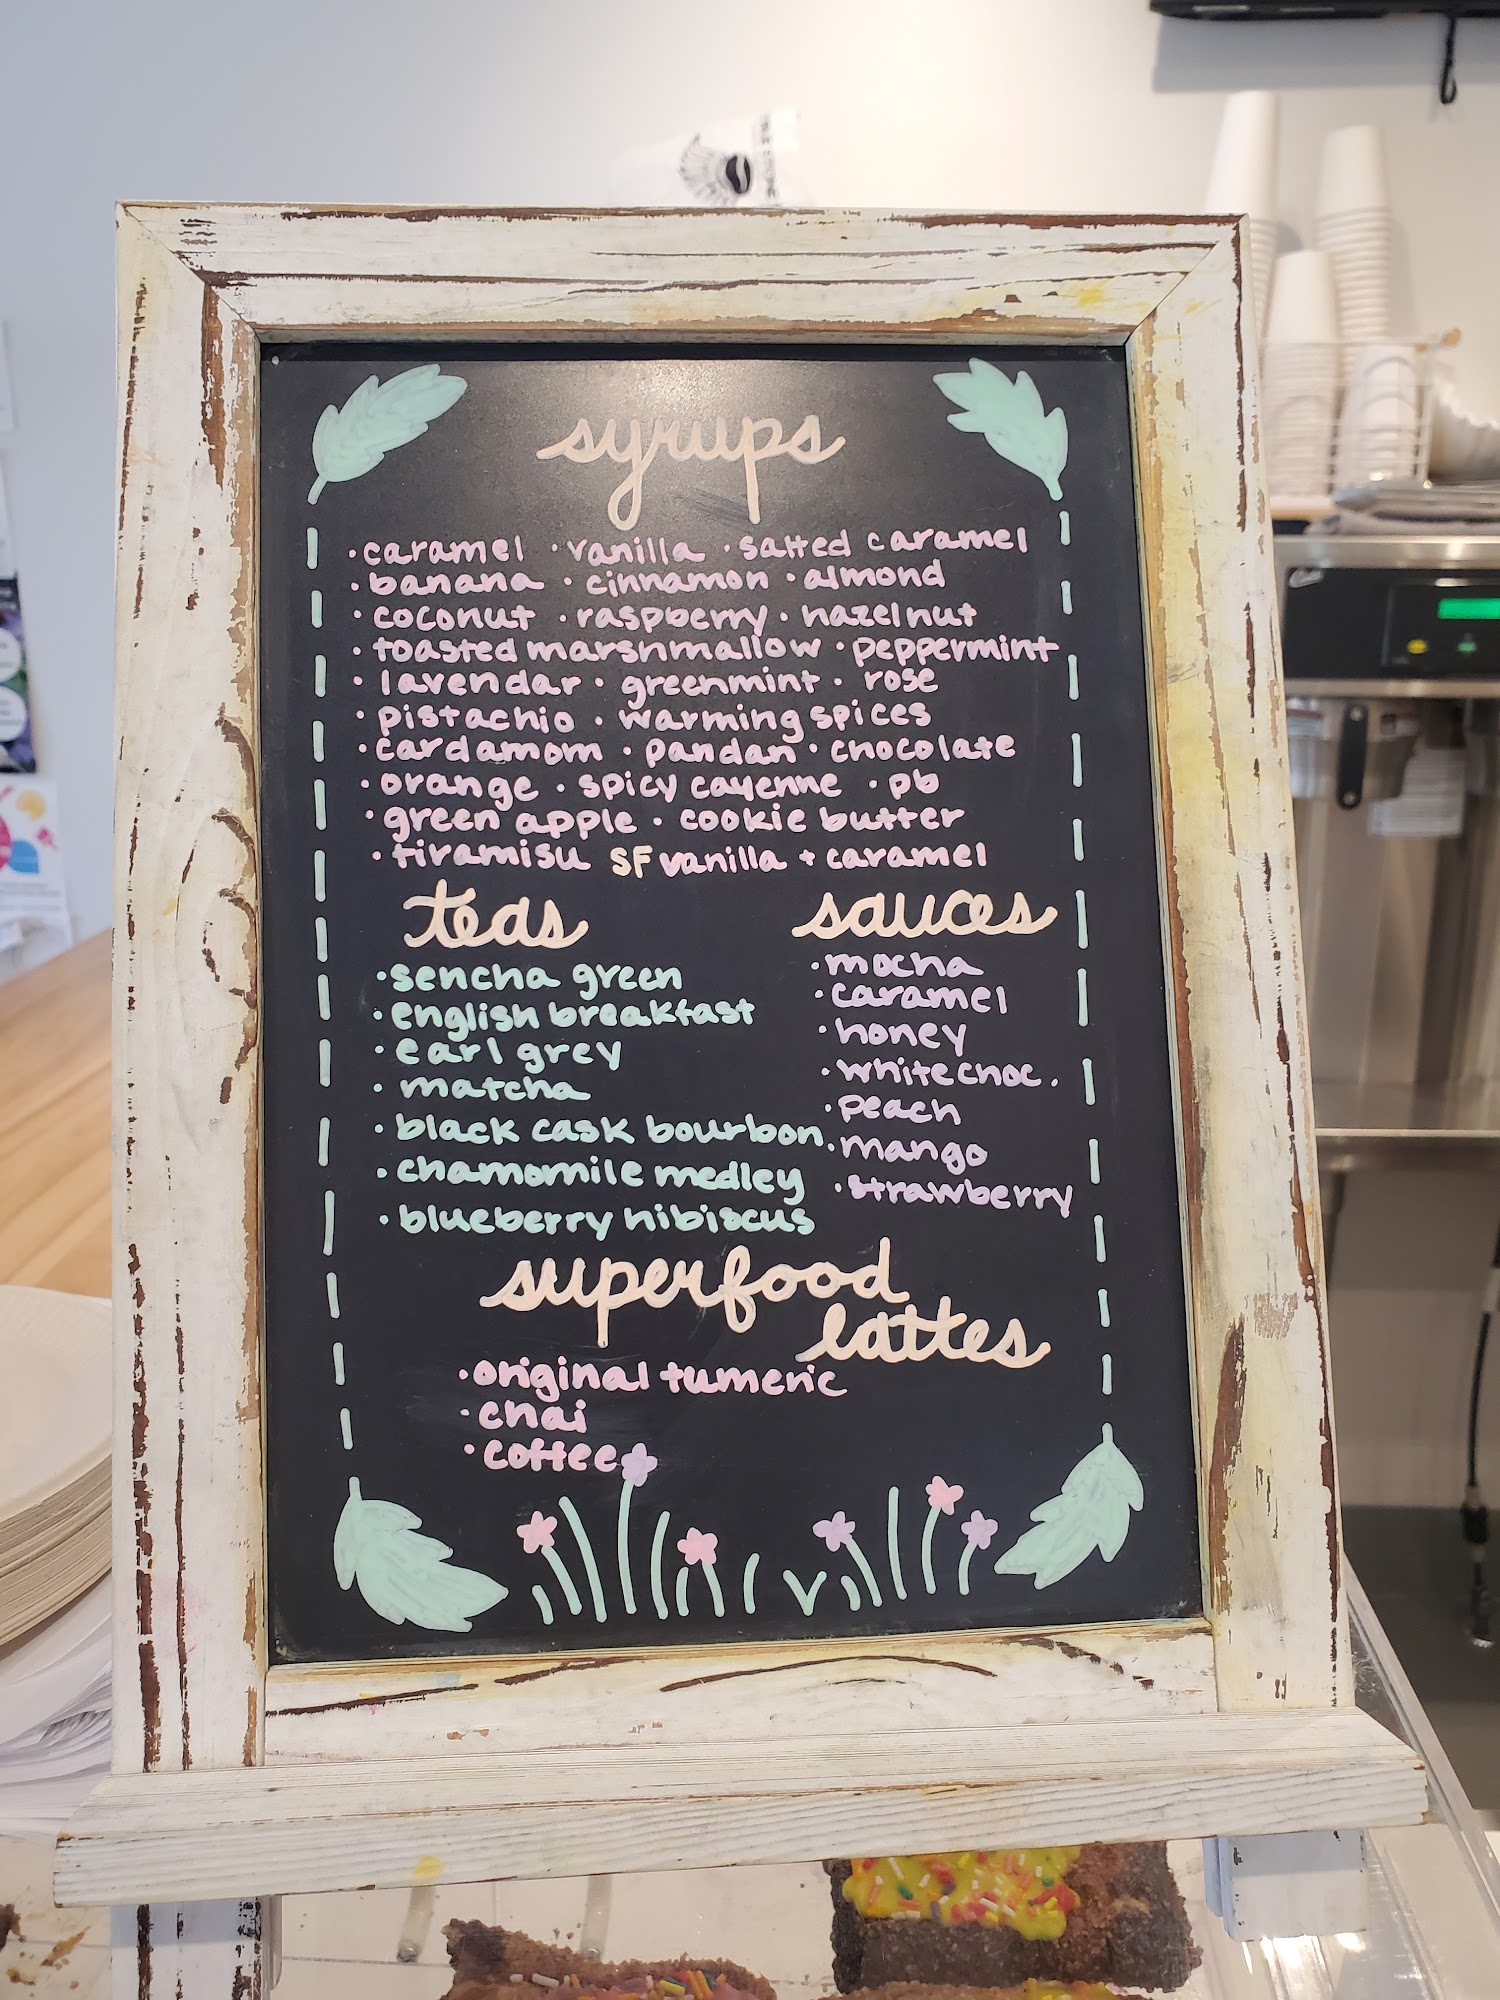 syrups
·caramel ·vanilla ·salted caramel
·banana ·cinnamon ·almond
·coconut ·raspberry ·hazelnut
·toasted marshmallow ·peppermint
·lavendar ·greenmint ·rose
·pistachio ·warming spices
·cardamom ·pandan ·chocolate
·orange ·spicy cayenne ·pb
·green apple ·cookie butter
·tiramisu SF vanilla + caramel
teas
·sencha green
·english breakfast
·earl grey
·matcha
·black cask bourbon
·chamomile medley
·blueberry hibiscus
sauces
·mocha
·caramel
·honey
·white choc.
·peach
·mango
·strawberry
superfood
lattes
·original tumeric
·chai
·coffee